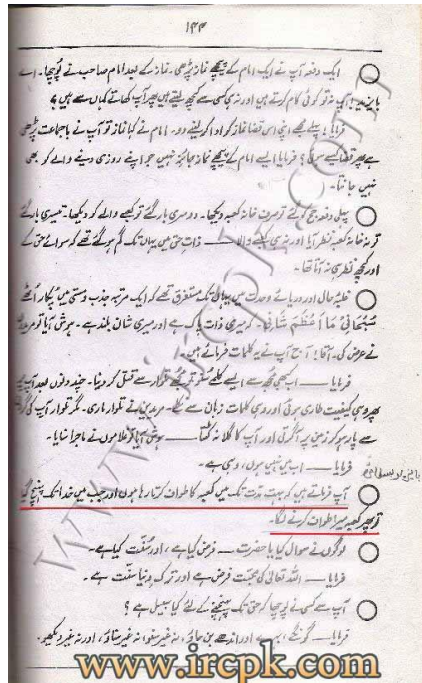 ۱۴۴
ایک دفعہ آپ نے ایک امام کے پیچھے نماز پڑھی۔ نماز کے بعد امام صاحب نے پوچھا۔ اے
بایزید! آپ نہ تو کوئی کام کرتے ہیں اور نہ ہی کسی سے کچھ لیتے ہیں پھر آپ کھاتے کہاں سے ہیں؟
فرمایا! پہلے مجھے اپنی اس قضا نماز کو ادا کر لینے دو۔ امام نے کہا نماز تو آپ نے باجماعت پڑھی
ہے پھر قضا کیسے ہوئی؟ فرمایا ایسے امام کے پیچھے نماز جائز نہیں جو اپنے روزی دینے والے کو بھی
نہیں جانتا۔
پہلی دفعہ حج کو گئے تو صرف خانہ کعبہ دیکھا۔ دوسری بار گئے تو کعبے والے کو دیکھا۔ تیسری بار گئے
تو نہ خانہ کعبہ نظر آیا اور نہ ہی کعبے والا ــــ ذاتِ حق میں یہاں تک گم ہو گئے تھے کہ سوائے حق کے
اور کچھ نظر ہی نہ آتا تھا۔
غلبۂ حال اور دریائے وحدت میں یہاں تک مستغرق تھے کہ ایک مرتبہ جذب و مستی میں پکار اٹھے
سُبْحَانِیْ مَا اَعْظَمَ شَانِیْ۔ کہ میری ذات پاک ہے اور میری شان بلند ہے۔ ہوش آیا تو مریدوں
نے عرض کی۔ آقا! آج آپ نے یہ کلمات فرمائے ہیں۔
فرمایا ــــ اب کبھی مجھ سے ایسے کلمے سنو تو مجھے تلوار سے قتل کر دینا۔ چند دنوں بعد آپ پر
پھر وہی کیفیت طاری ہوئی اور وہی کلمات زبان سے نکلے۔ مریدین نے تلوار ماری۔ مگر تلوار آپ کی گردن
سے پار ہو کر زمین پر آ گرتی اور آپ کا گلا نہ کٹتا ــــ ہوش آیا تو غلاموں نے ماجرا سنایا۔
فرمایا ــــ اب میں نہیں ہوں، وہی ہے۔
بایزید بسطامی
آپ فرماتے ہیں کہ بہت مدت تک میں کعبہ کا طواف کرتا رہا ہوں اور جب میں خدا تک پہنچ گیا
تو پھر کعبہ میرا طواف کرنے لگا۔
لوگوں نے سوال کیا یا حضرت ــــ فرض کیا ہے، اور سنت کیا ہے۔
فرمایا ــــ اللہ تعالیٰ کی محبت فرض ہے اور ترک دنیا سنت ہے۔
آپ سے کسی نے پوچھا کہ حق تک پہنچنے کے لئے کیا سبیل ہے؟
فرمایا ــــ گونگے، بہرے اور اندھے بن جاؤ، نہ غیر سنو، نہ غیر سناؤ، اور نہ غیر دیکھو۔
www.ircpk.com